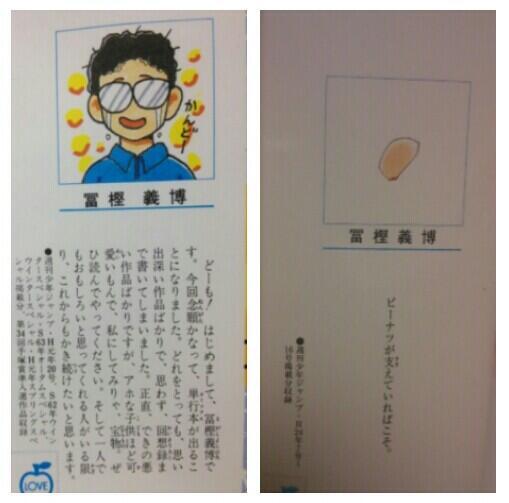 かんどー
冨樫義博
どーも！はじめまして、冨樫義博で
す。今回念願かなって、単行本が出るこ
とになりました。どれをとっても、思い
出深い作品ばかりで、思わず、回想録ま
で書いてしまいました。正直、できの悪
い作品ばかりですが、アホな子供ほど可
愛いもんで、私にしてみりゃ、宝物。ぜ
ひ読んでやってください。そして一人で
もおもしろいと思ってくれる人がいる限
り、これからもかき続けたいと思います。
●週刊少年ジャンプ・H元年20号、S62年ウイン
タースペシャル・S63年オータムスペシャル、
ウインタースペシャル・H元年スプリングスペ
シャル掲載分、第34回手塚賞準入選作品収録
LOVE
冨樫義博
ピーナツが支えていればこそ。
●週刊少年ジャンプ・H24年
16号掲載分収録